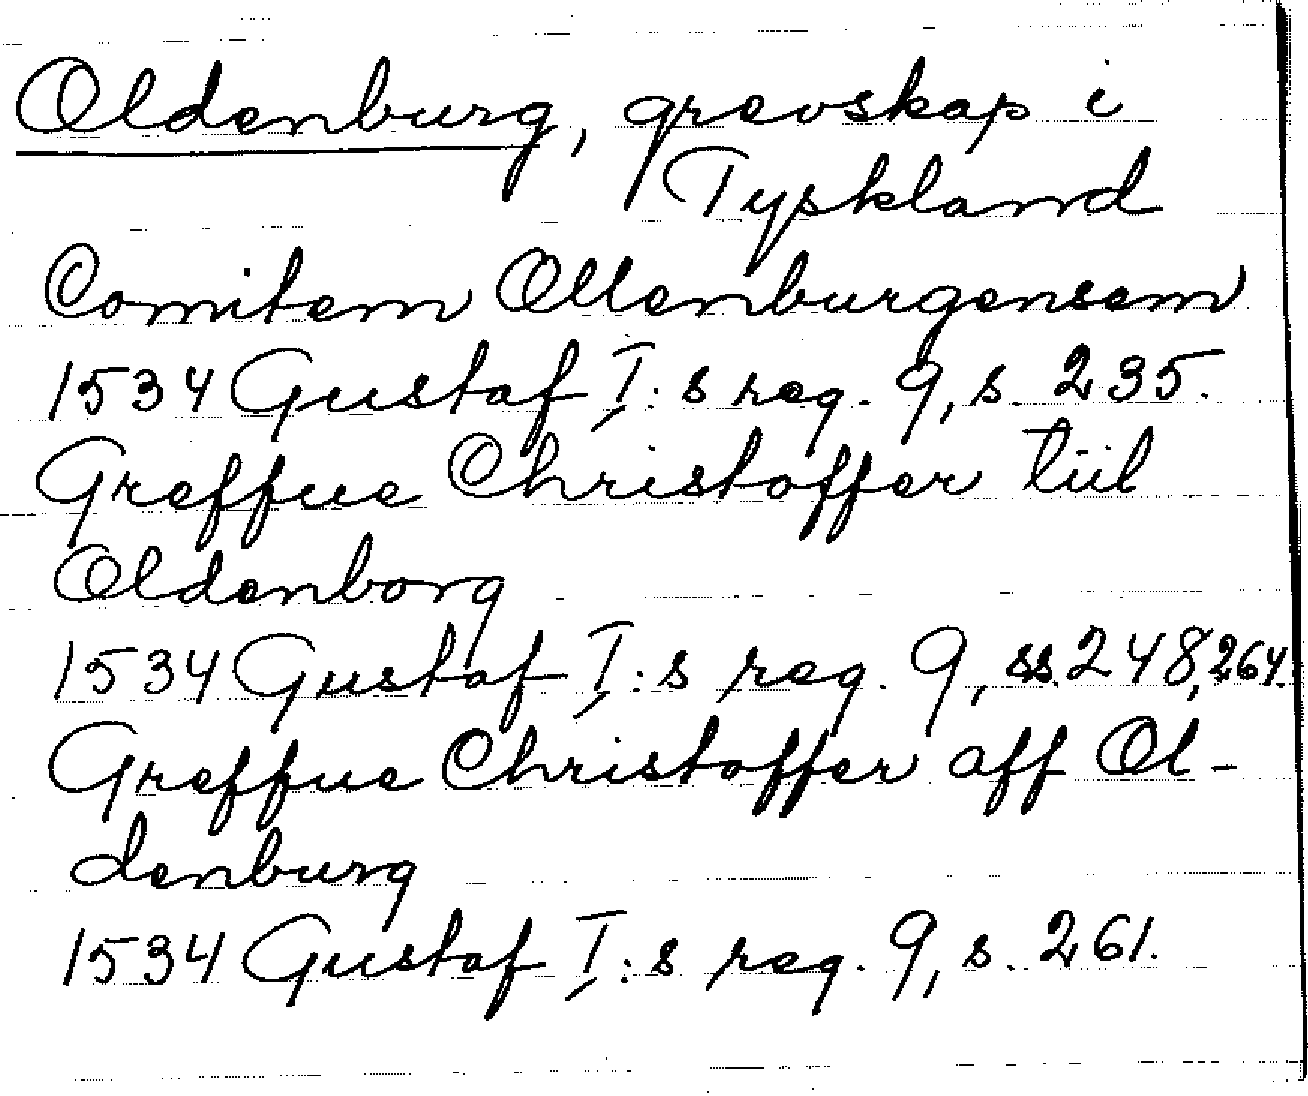 Oldenburg, grevskap i
Tyskland
Comitem Ollenburgensem
1534 Gustaf I:s reg. 9, s. 235.
Greffue Christoffer tiil
Oldenborg
1534 Gustaf I:s reg. 9, ss. 248, 264.
Greffue Christoffer aff Ol-
denburg
1534 Gustaf I:s reg. 9, s. 261.